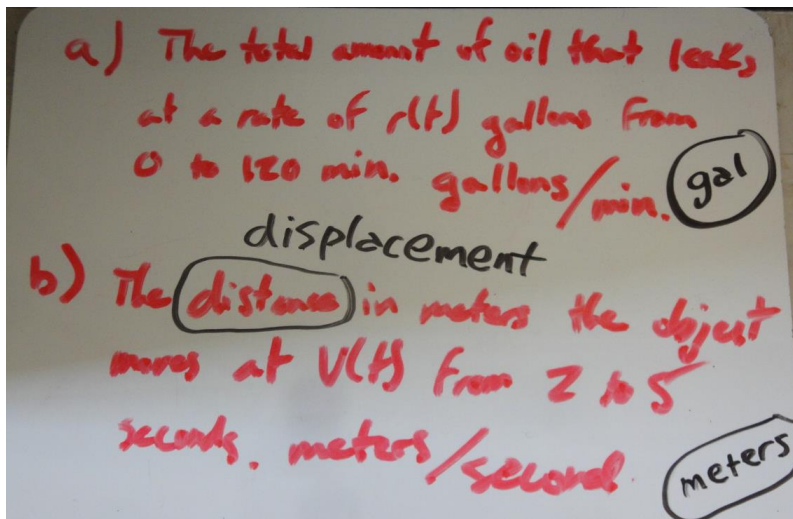 a) The total amount of oil that leaks
at a rate of r(t) gallons from
0 to 120 min. gallons/min. gal
displacement
b) The distance in meters the object
moves at V(t) from 2 to 5
seconds. meters/second. meters